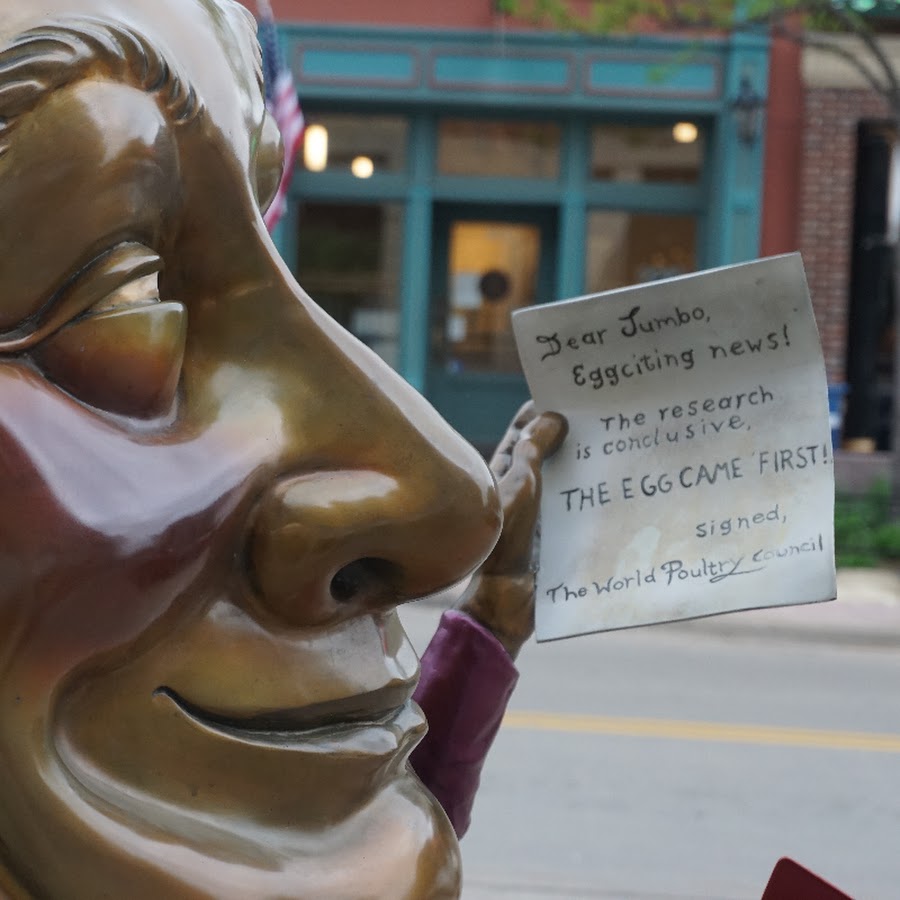 Dear Jumbo,
Eggciting news!
The research
is conclusive,
THE EGG CAME FIRST!
signed,
The World Poultry Council